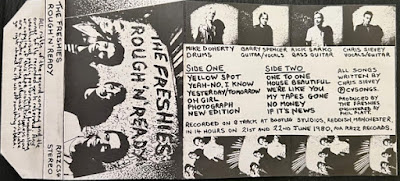 THE FRESHIES
ROUGH 'N' READY
RAZZ CS4
STEREO
THE FRESHIES
ROUGH 'N' READY
MIKE DOHERTY
DRUMS
BARRY SPENCER
GUITAR/VOCALS
RICK SARKO
BASS GUITAR
CHRIS SIEVEY
VOCALS/GUITAR
SIDE ONE
YELLOW SPOT
YEAH-NO, I KNOW
YESTERDAY/TOMORROW
OH GIRL
PHOTOGRAPH
NEW EDITION
SIDE TWO
ONE TO ONE
HOUSE BEAUTIFUL
WE'RE LIKE YOU
MY TAPES GONE
NO MONEY
IF IT'S NEWS
ALL SONGS
WRITTEN BY
CHRIS SIEVEY
©CVSONGS.
PRODUCED BY
THE FRESHIES
ENGINEERED BY
PHIL PLATT.
RECORDED ON 8 TRACK AT BOOTLEG STUDIOS, REDDISH, MANCHESTER,
IN 14 HOURS ON 21ST AND 22ND JUNE 1980, FOR RAZZ RECORDS.